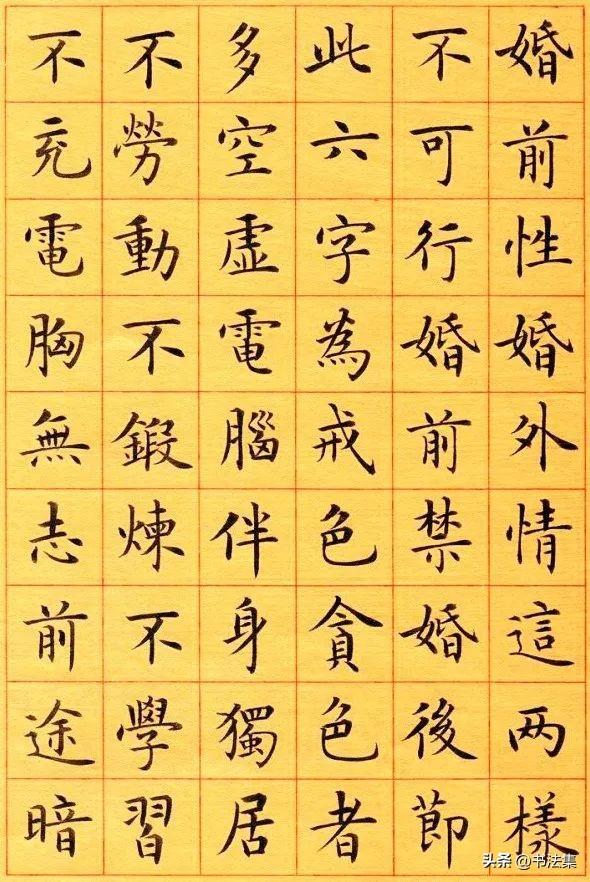 婚前性婚外情這两樣
不可行婚前禁婚後節
此六字為戒色貪色者
多空虛電腦伴身獨居
不勞動不鍛煉不學習
不充電胸無志前途暗
头条 @书法集